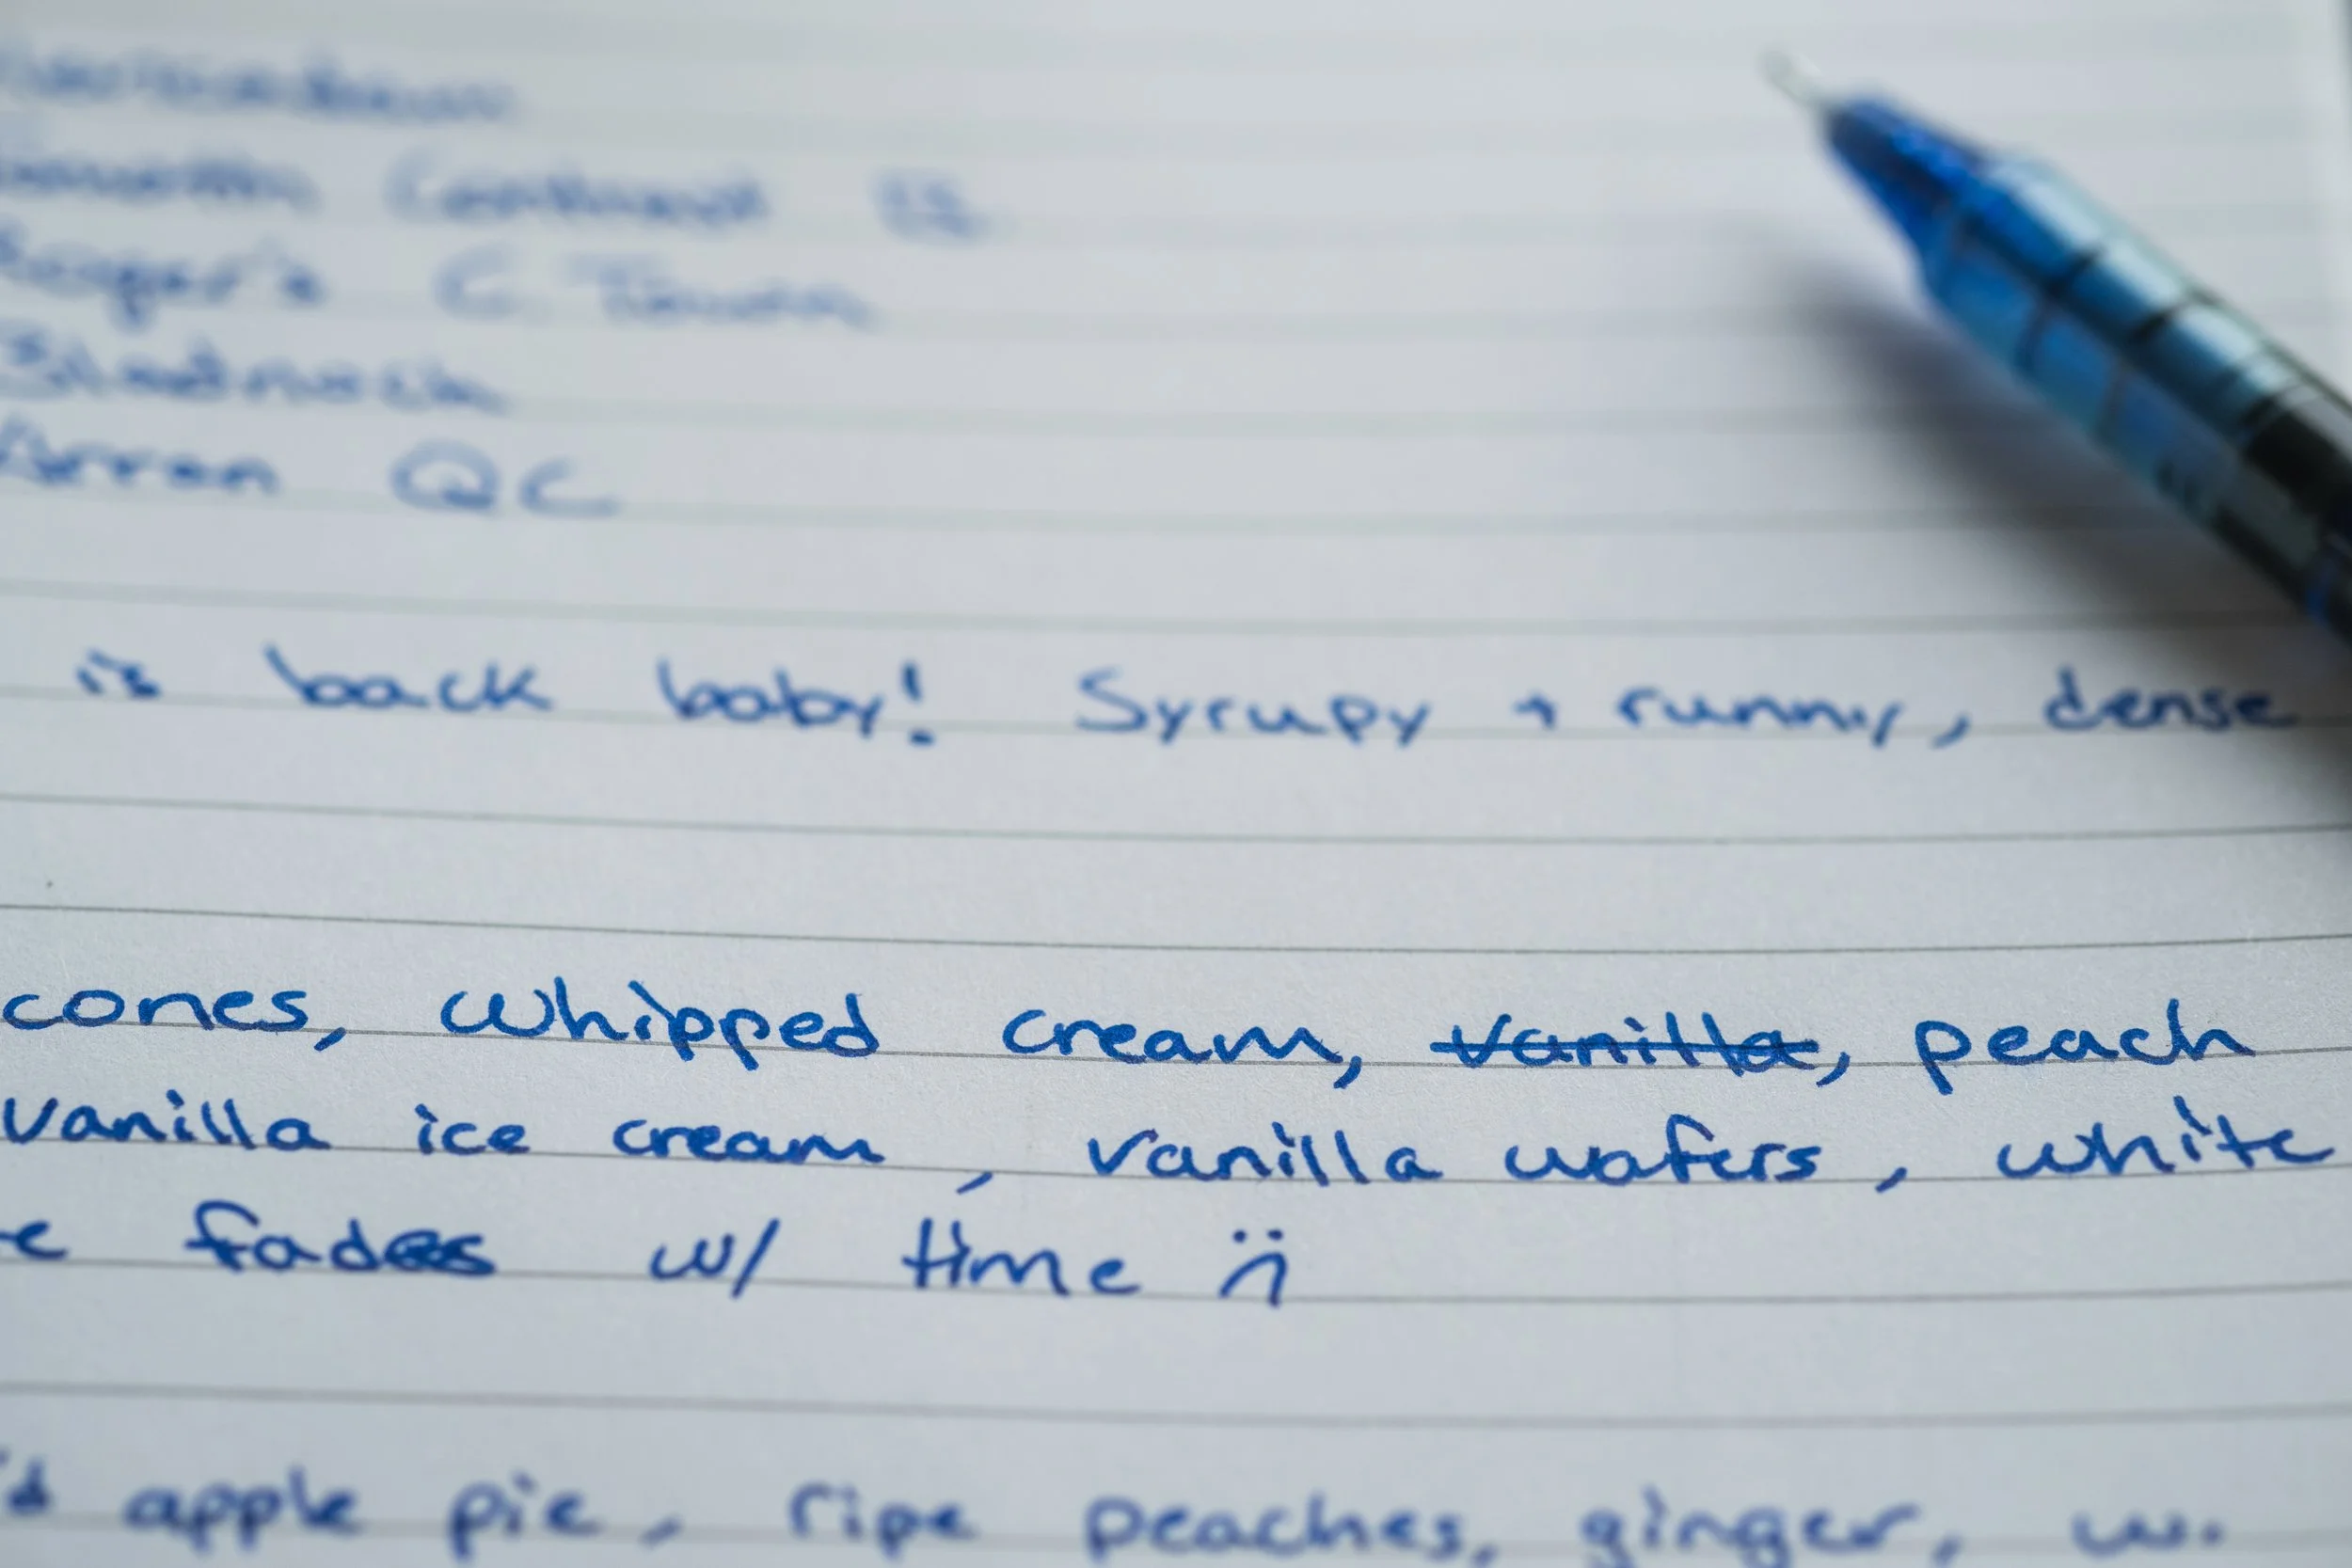 Roger's C. Town
Bladnoch
Arran QC
is back baby! Syrupy + runny, dense
cones, whipped cream, vanilla, peach
vanilla ice cream, vanilla wafers, white
fades w/ time
apple pie, ripe peaches, ginger, w.